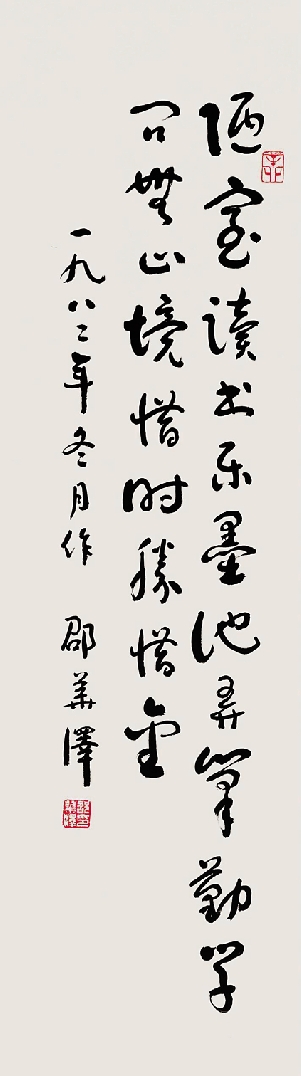 陋室讀书乐墨池弄筆勤学
问無止境惜时勝惜金
一九八二年冬月作 邵華澤